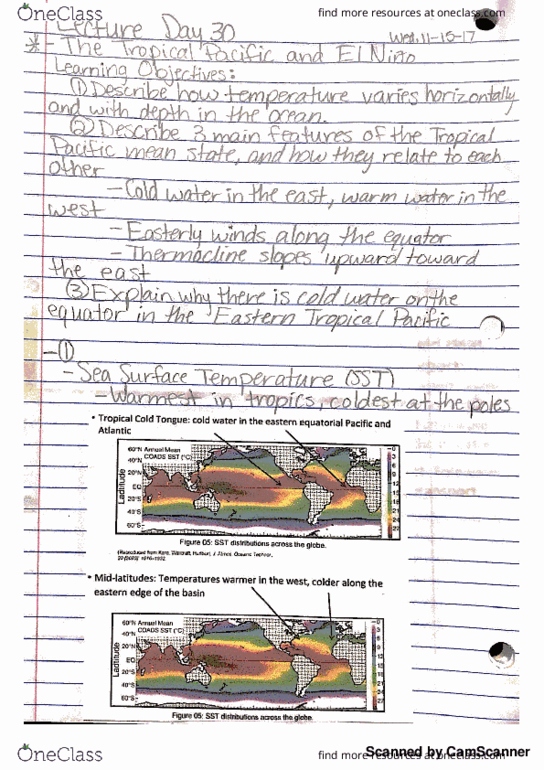 OneClass
find more resources at oneclass.com
Lecture Day 30
Wed. 11-15-17
* - The Tropical Pacific and El Niño
Learning Objectives:
① Describe how temperature varies horizontally
and with depth in the ocean.
② Describe 3 main features of the Tropical
Pacific mean state, and how they relate to each
other
- Cold water in the east, warm water in the
west
- Easterly winds along the equator
- Thermocline slopes upward toward
the east
③ Explain why there is cold water on the
equator in the Eastern Tropical Pacific
- ①
- Sea Surface Temperature (SST)
- Warmest in tropics, coldest at the poles
• Tropical Cold Tongue: cold water in the eastern equatorial Pacific and
Atlantic
Annual Mean
COADS SST (°C)
Latitude
60°N
40°N
20°N
EQ
20°S
40°S
60°S
Figure 05: SST distributions across the globe.
• Mid-latitudes: Temperatures warmer in the west, colder along the
eastern edge of the basin
Annual Mean
COADS SST (°C)
Latitude
60°N
40°N
20°N
EQ
20°S
40°S
60°S
Figure 05: SST distributions across the globe.
OneClass
find more resources at oneclass.com
Scanned by CamScanner